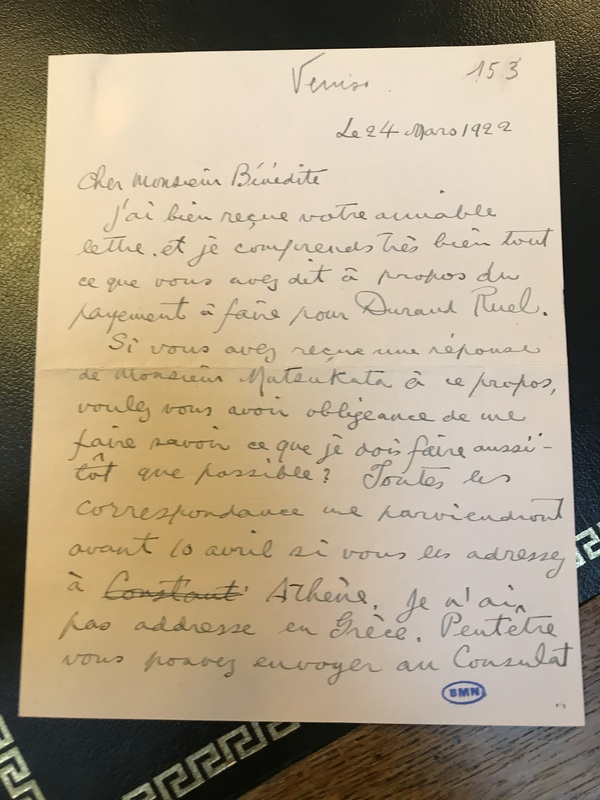 Venise
153
Le 24 Mars 1922
Cher Monsieur Bénédite
J'ai bien reçue votre aimable
lettre et je comprends très bien tout
ce que vous avez dit à propos du
payement à faire pour Durand Ruel.
Si vous avez reçue une réponse
de Monsieur Matsukata à ce propos,
voulez vous avoir obligeance de me
faire savoir ce que je dois faire aussi-
tôt que possible? Toutes les
correspondance me parviendront
avant 10 avril si vous les adressez
à Constant' Athène. Je n'ai
pas addresse en Grèce. Peutêtre
vous pouvez envoyer au Consulat
BMN